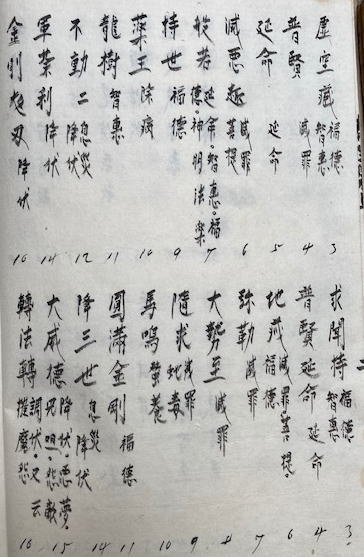 虚空藏 福德 智惠 3
普賢 滅罪 4
延命 延命 5
滅悪趣 滅罪 菩提 6
般若 延命。智惠。福德。神明法楽 7
持世 福德 9
薬王 除病 10
龍樹 智惠 11
不動 二 息災 降伏 12
軍荼利 降伏 14
金剛夜叉 降伏 16
求聞持 福德 智惠 3
普賢延命 延命 4
地蔵 滅罪。菩提。福德 6
弥勒 滅罪 7
大勢至 滅罪 8
隨求 滅罪 9
馬鳴 蚕養 10
圓滿金剛 福德 11
降三世 息災 降伏 14
大威德 降伏。悪夢。呪咀。怨敵 15
轉法轉 調伏。又云 摧魔怨 16